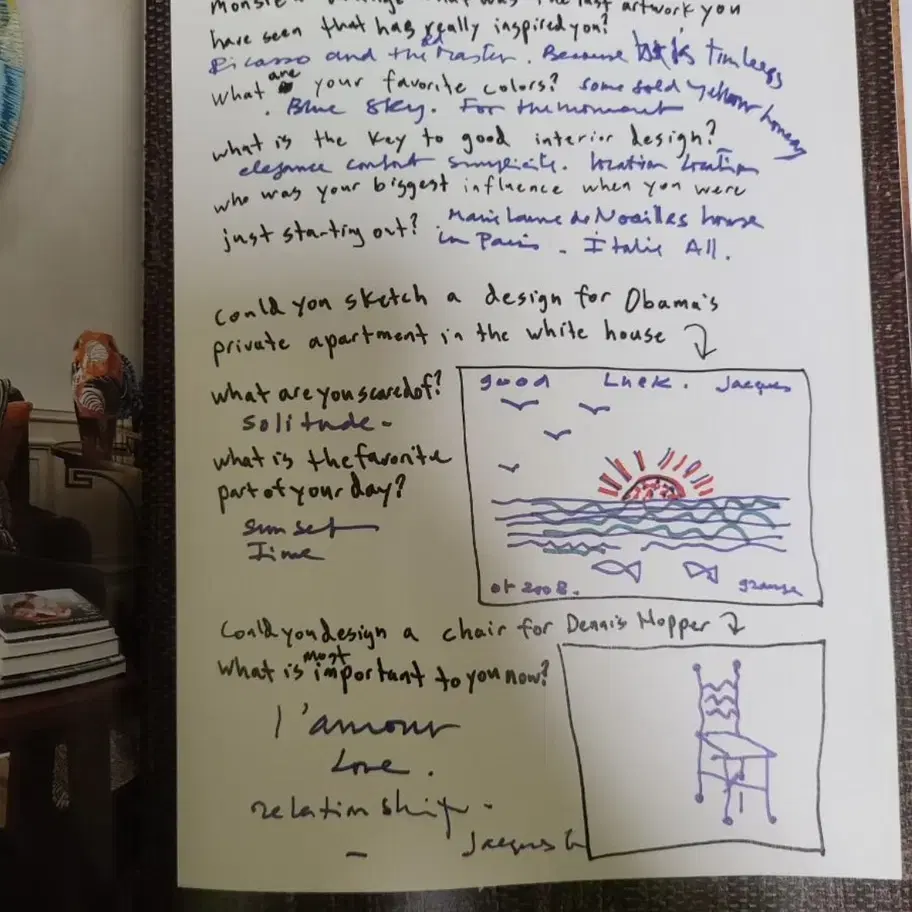 artwork you
have seen that has really inspired you?
Picasso and the Master. Because is timless
what are your favorite colors? some gold yellow honey
. Blue sky. For the moment
what is the key to good interior design?
elegance confort simplicite. location location
who was your biggest influence when you were
just starting out? Marie Laure de Noailles house
in Paris. Italie All.
Could you sketch a design for Obama's
private apartment in the white house
good Luck. Jacques
what are you scared of?
solitude.
what is the favorite
part of your day?
sunset
Time
2008.
grange
Could you design a chair for Dennis Hopper
what is most important to you now?
l'amour
Love.
relationship.
Jacques G